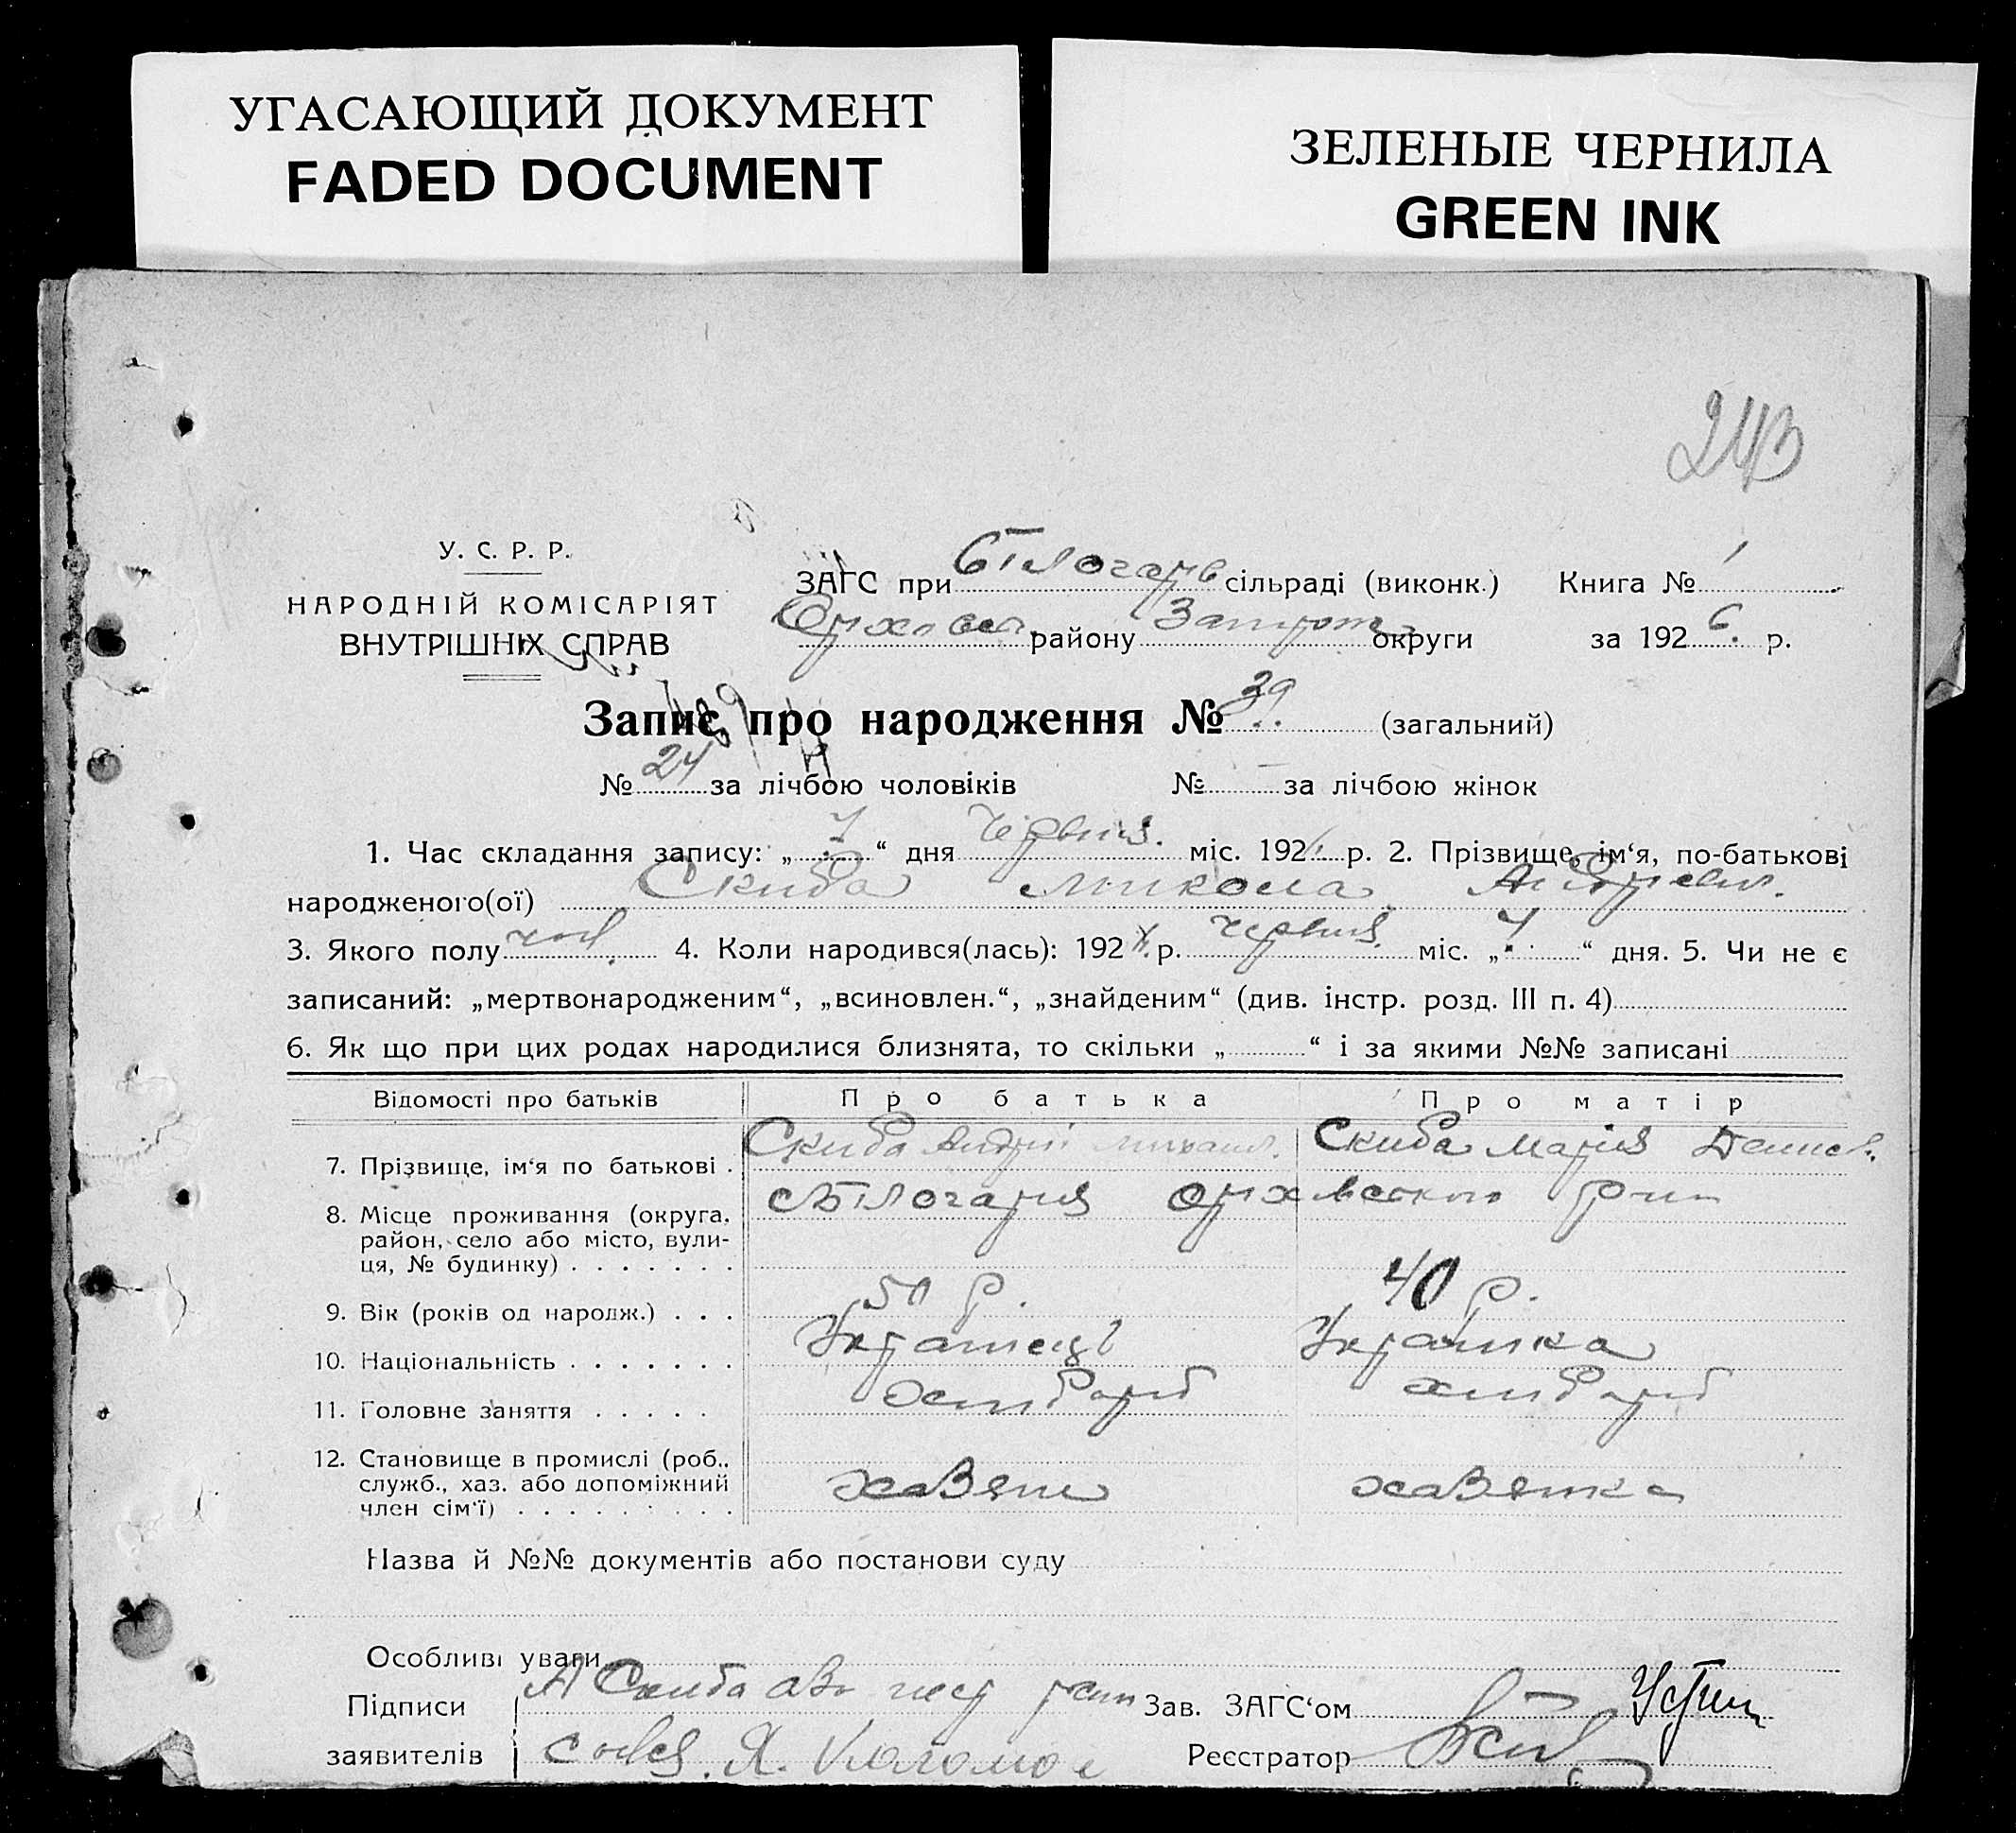 УГАСАЮЩИЙ ДОКУМЕНТ
FADED DOCUMENT
ЗЕЛЕНЫЕ ЧЕРНИЛА
GREEN INK
243
У. С. Р. Р.
НАРОДНІЙ КОМІСАРІЯТ
ВНУТРІШНІХ СПРАВ
ЗАГС при Білогарів сільраді (виконк.) Книга № 1
Оріхівськ. району Запоріж. округи за 1926 р.
Запис про народження № 39 (загальний)
№ 24 за лічбою чоловіків № — за лічбою жінок
1. Час складання запису: „7“ дня Червня міс. 192 р. 2. Прізвище, ім‘я, по-батькові
народженого(ої) Скиба Микола Андрієвич.
3. Якого полу чол. 4. Коли народився(лась): 192 р. Червня міс. „4“ дня. 5. Чи не є
записаний: „мертвонародженим“, „всиновлен.“, „знайденим“ (див. інстр. розд. III п. 4)
6. Як що при цих родах народилися близнята, то скільки „ “ і за якими №№ записані
Відомості про батьків Про батька Про матір
7. Прізвище, ім‘я по батькові . Скиба Андрій Михайл. Скиба Марія Денис.
8. Місце проживання (округа, район, село або місто, вулиця, № будинку) . . . . . . . с. Білогаря Оріхівського
9. Вік (років од народж.) . . . 50 р. 40 р.
10. Національність . . . . . . . Українець Українка
11. Головне заняття . . . . . хлібороб хлібороб
12. Становище в промислі (роб., служб., хаз. або допоміжний член сім‘ї) . . . . . . . . . хазяїн хазяйка
Назва й №№ документів або постанови суду
Особливі уваги
Підписи А Скиба Зав. ЗАГС‘ом
заявителів Я. Коломо Реєстратор